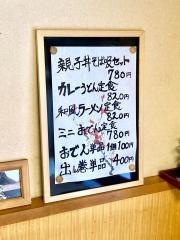 親子丼そば(冷)セット
780円
カレーうどん定食
820円
和風ラーメン定食
820円
ミニおでん定食
780円
おでん単品1個100円
出し巻単品400円